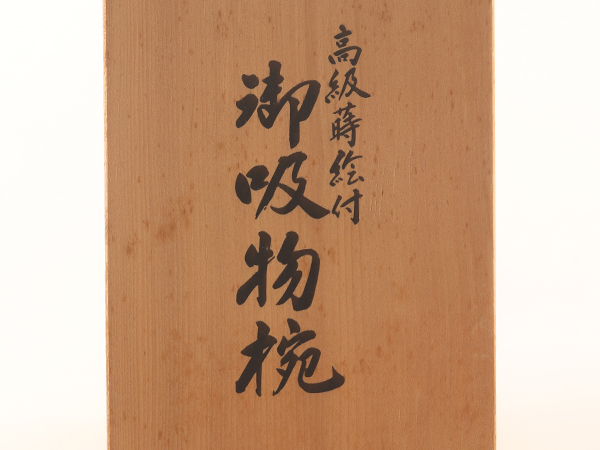 高級蒔絵付
御吸物椀